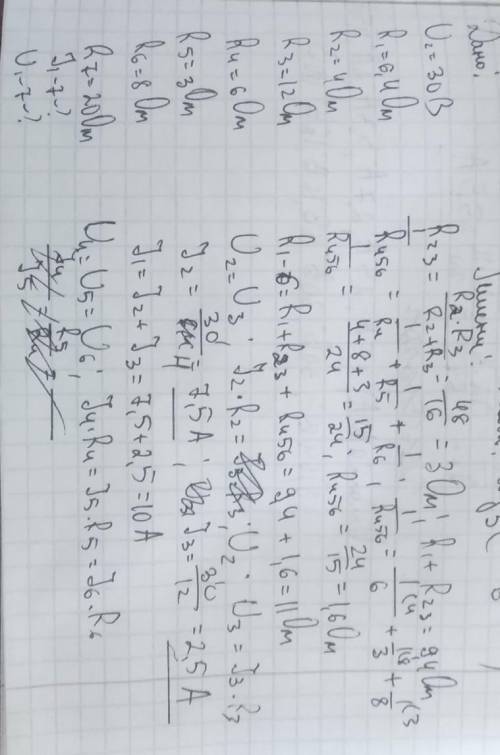 Дано:
U₂=30В
R₁=6,4Ом
R₂=4Ом
R₃=12Ом
R₄=6Ом
R₅=3Ом
R₆=8Ом
R₇=20Ом
J₁-7-?
U₁-7-?
R₂₃ = R₂·R₃/R₂+R₃ = 48/16 = 3Ом; R₁+R₂₃=9,4Ом
1/R₄₅₆ = 1/R₄ + 1/R₅ + 1/R₆; 1/R₄₅₆ = 1/6 + 1/3 + 1/8
1/R₄₅₆ = 4+8+3/24 = 15/24; R₄₅₆ = 24/15 = 1,6Ом
R₁-6=R₁+R₂₃+R₄₅₆=9,4+1,6=11Ом
U₂=U₃; J₂·R₂= U₂; U₃=J₃·R₃
J₂ = 30/4 = 7,5A; J₃ = 30/12 = 2,5A
J₁=J₂+J₃=7,5+2,5=10A
U₄=U₅=U₆; J₄·R₄=J₅·R₅=J₆·R₆